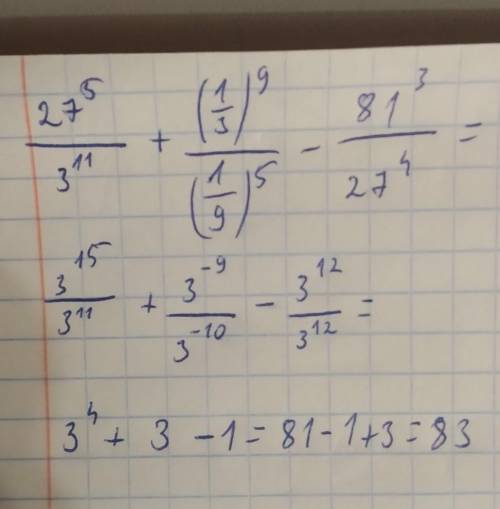 27⁵/3¹¹ + (1/3)⁹/(1/9)⁵ - 81³/27⁴ =
3¹⁵/3¹¹ + 3⁻⁹/3⁻¹⁰ - 3¹²/3¹² =
3⁴ + 3 - 1 = 81 - 1 + 3 = 83